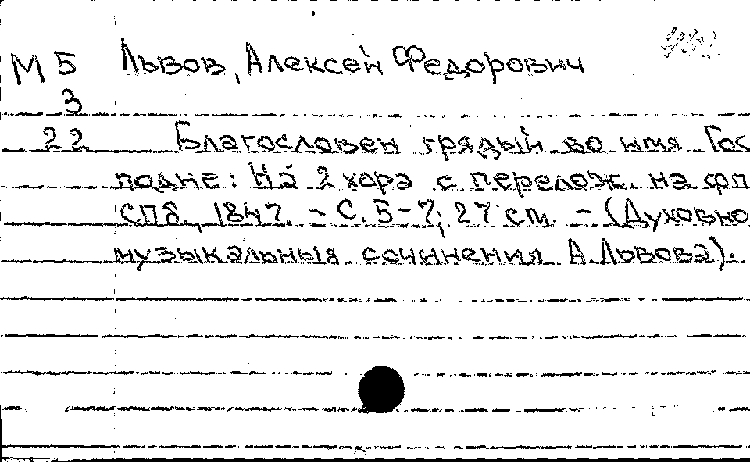 М 5 Львов, Алексей Федорович
3
22 Благословен грядый во имя Гос
подне: На 2 хора с перелож. на фп
СПб., 1847. – С. 5–7; 27 см. – (Духовно
музыкальныя сочинения А. Львова).